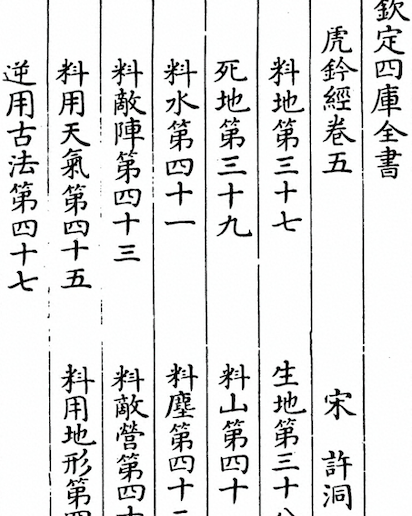 欽定四庫全書
虎鈐經卷五 宋 許洞
料地第三十七 生地第三十八
死地第三十九 料山第四十
料水第四十一 料塵第四十二
料敵陣第四十三 料敵營第四十
料用天氣第四十五 料用地形第四
逆用古法第四十七